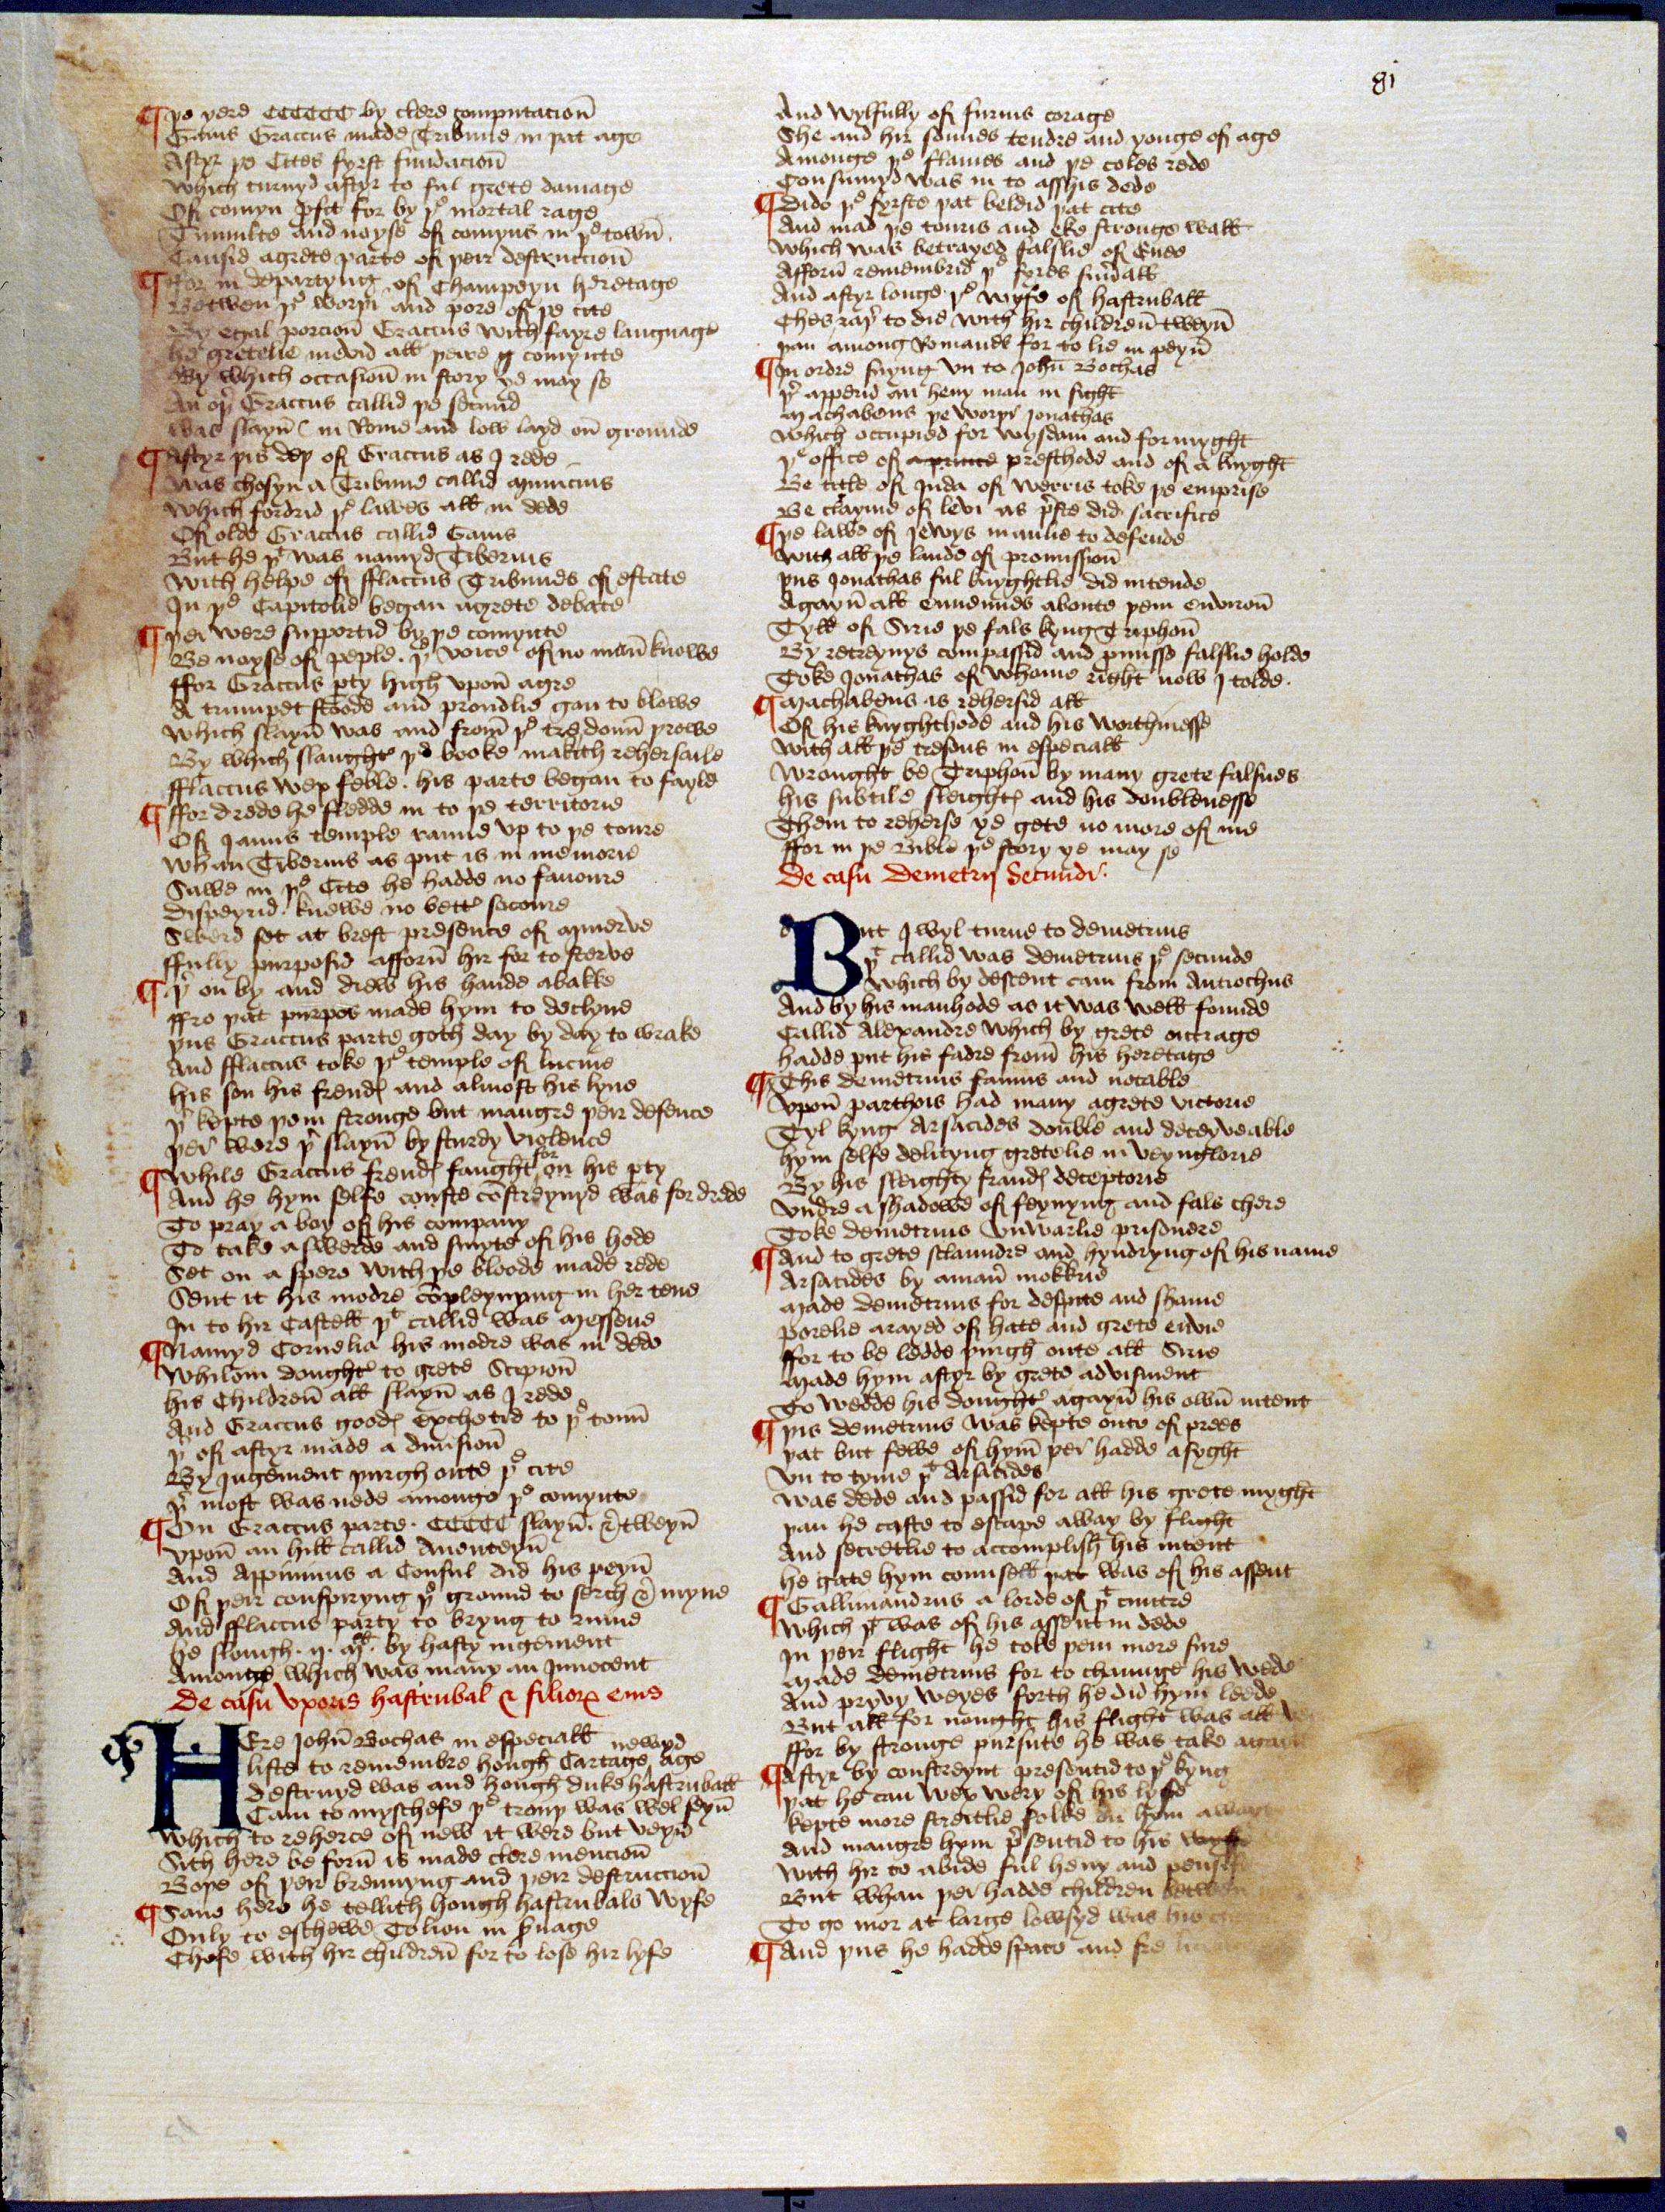 81
¶ þe yere CCCCCC by clere computacioñ
Gaius Graccus made Tribune in þat age
Aftyr þe Cites fyrst fundacioñ
which turnyd aftyr to ful grete damage
Of comyn ꝓfit for by þe mortal rage
Tumulte and noyse of comyns in þe towñ.
Causid agrete parte of þeir destruccioñ
¶ For in departyng of Champeyn heretage
Betwen þe worþi and pore of þe cite
By egal porcioñ Graccus with fayre language
he gretelie mevid all þeire comynte
By which occasioñ in story ye may se
An oþer Graccus callid þe secund
was slayñ in Rome and low layd oñ grounde
¶ Aftyr þis deþ of Graccus as I rede
was chosyn a Tribune callid Municius
which fordrid þe lawes all in dede
Of olde Graccus callid Gaius
But he þt was namyd Tiberius
with helpe of fflaccus Tribunes of estate
In þe Capitolie began agrete debate
¶ þei were supportid by þe comynte
Be noyse of peple. þe voice of no mañ knowe
ffor Graccus pty high vpoñ agre
A trumpet stoode and proudlie gan to blowe
which slayñ was and from þe tre douñ þrowe
By which slaughtr þe booke makith rehersaile
fflaccus wex feble. his parte began to fayle
¶ ffor drede he fledde in to þe territorie
Of Janus temple ranne vp to þe toure
whan Tiberius as put is in memorie
Sawe in þe Cite he hadde no favoure
Dispeyrid. knewe no bettr socoure
Swerd set at brest presence of Minerve
ffully purposid afforñ hir for to sterve
¶ þr on by and drew his hande abakke
ffro þat purpos made hym to declyne
þus Graccus parte goth day by day to wrake
And fflaccus toke þe temple of lucine
his son his frendes and almost his lyne
þr kepte þem stronge but maugre þeir defence
þei were þr slayñ by sturdy violence
¶ while Graccus frendes faught for on his pty
And he hym selfe conste cõstreynyd was for drede
To pray a boy of his company
To take aswerde and smyte of his hede
Set on a spere with þe bloode made rede
Sent it his modre cõpleynyng in her tene
In to hir Castell þt callid was Messene
¶ Namyd Cornelia his modre was in dede
whilom doughtr to grete Scipioñ
his Childreñ all slayñ as I rede
And Graccus goodes exchetid to þe touñ
þr of aftyr made a divisioñ
By jugement þurgh oute þe cite
þr most was nede amonge þe comynte
¶ On Graccus parte. CCCCC slayñ. & tweyñ
vpoñ an hill callid Aventeyñ
And Appimius a Consul did his peyñ
Of þeir conspiryng þe ground to serch & myne
And fflaccus party to bryng to ruine
he slough. ij. Ml. by hasty jugement
Amonge which was many an Innocent
De casu vxoris hastrubal & filiorꝝ eius
HEre Johñ Bochas in especiall
liste to remembre hough Cartage newyd age
destruyd was and hough duke hastruball
Cam to myschefe þe trouþ was wel seyñ
which to reherce of new it were but veyñ
Sith here be forñ is made clere mencioñ
Boþe of þeir brennyng and þeir destruccioñ
¶ Saue here he tellith hough hastrubals wyfe
Only to eschewe To liou in ẜuage
Chose with hir childreñ for to lose hir lyfe
And wylfully of furius corage
She and hir sonnes tendre and yonge of age
Amonge þe flames and þe coles rede
Consumyd was in to asshis dede
¶ Dido þe fyrste þat beldid þat cite
And mad þe touris and eke stronge wall
which was betrayed falslie of Enee
Afforñ remembrid þe fyres fuñall
And aftyr longe. þe wyfe of hastruball
Ches raþr to die with hir childreñ tweyñ
þan among Romanes for to lie in peyñ
¶ In ordre suyng vn to Johñ Bochas
þr apperid an heuy man in sight
Machabeus þe worþi Jonathas
which occupied for wysdam and for myght
þe office of a prince presthode and of a knyght
Be title of Juda of werris toke þe emprise
Be clayme of levi as p̃ste did sacrifice
¶ þe lawe of Jewys manlie to defende
with all þe lande of promissioñ
þus Jonathas ful knyghtlie did intende
Agayñ all ennemies aboute þem enviroñ
Tyll of Sirie þe fals kyng Triphoñ
By retreynys compassid and promisse falslie holde
Toke Jonathas of whome right now I tolde.
¶ Machabeus as rehersid all
Of his knyghthode and his worthinesse
with all þe tresons in especiall
wrought be Triphoñ by many grete falsnes
his subtile sleightes and his doublenesse
Them to reherse ye gete no more of me
ffor in þe Bible þe story ye may se
De casu Demetrij Secundi.
But I wyl turne to demetrius
þt callid was demetrius þe secunde
which by descent cam from Antiochus
And by his manhode as it was well founde
Callid Alexandre which by grete outrage
hadde put his fadre from his heretage
¶ This demetrius famus and notable
vpoñ parthois had many agrete victorie
Tyl kyng Arsacides double and deceyveable
hym selfe delityng gretelie in veynglorie
By his sleighty fraudes deceptorie
vndre a shadowe of feynyng and fals chere
Toke demetrius vnwarlie prisonere
¶ And to grete sclaundre and hyndryng of his name
Arsacides by amañ mokkrie
Made demetrius for despite and shame
porelie arayed of hate and grete envie
ffor to be ledde þurgh oute all Sirie
Made hym aftyr by grete advisment
To wedde his doughtr agayñ his owñ intent
¶ þis demetrius was kepte oute of prees
þat but fewe of hym þer hadde asyght
vn to tyme þt Arsacides
was dede and passid for all his grete myght
þan he caste to escape away by flight
And secretlie to accomplish his intent
he gate hym counsell þat was of his assent
¶ Gallimandrus a lorde of þt cuntre
which þt was of his assent in dede
In þeir flight he toke þem more sure
Made demetrius for to chaunge his wede
And pryvy weyes forth he did hym leede
But all for nought his flight was all
ffor by stronge pursute he was take agayñ
¶ Aftyr by constreynt presentid to þe kyng
þat he can wex wery of his lyfe
kepte more streitlie folke on hym
And maugre hym p̃sentid to his wyfe
with hir to abide ful heuy and pensife
But whan þei hadde children betwen
To go mor at large lowsyd was his
¶ And þus he hadde space and fre